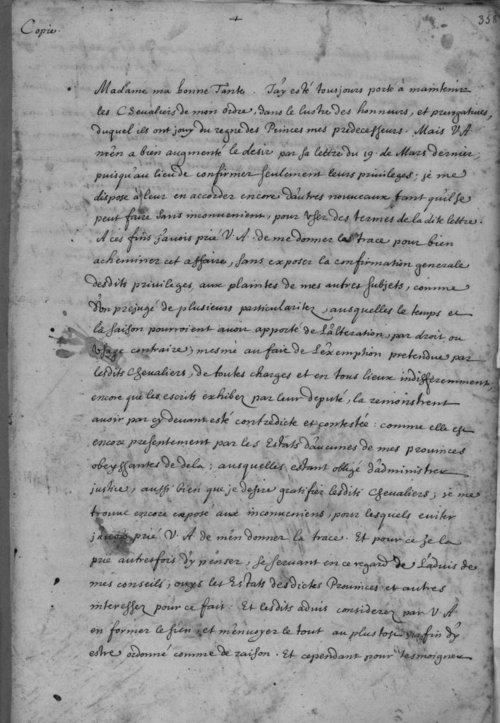 Copie.
358
Madame ma bonne Tante. J'ay esté tousjours porté à maintenir
les Chevaliers de mon ordre, dans le lustre des honneurs, et prerogatives,
duquel ils ont jouy du regne des Princes mes predecesseurs. Mais V.A
m'en a bien augmenté le desir par sa lettre du 19. de Mars dernier
puisqu'au lieu de confirmer seulement leurs privileges; je me
dispose à leur en accorder encore d'autres nouveaux tant qu'il se
peut faire sans inconvenient, pour user des termes de la dite lettre.
A ces fins j'avois prié V.A. de me donner la trace pour bien
acheminer cet affaire, sans exposer la confirmation generale
desdits privileges, aux plaintes de mes autres subjets, comme
d'un prejugé de plusieurs particularitez, ausquelles le temps et
la saison pourroient avoir apporté de l'alteration, par droit ou
usage contraire; mesme au faict de l'exemption pretendue par
lesdits Chevaliers, de toutes charges et en tous lieux indifferemment,
encore que les escrits exhibez par leur deputé, la remonstrent
avoir par cy devant esté contredicte et contestée: comme elle est
encore presentement par les Estats d'aucunes de mes provinces
obeyssantes de delà; ausquelles estant obligé d'administrer
justice, aussi bien que je desire gratifier lesdits Chevaliers; je me
trouve encore exposé aux inconveniens, pour lesquels eviter
j'avois prié V.A de m'en donner la trace. Et pour ce je la
prie autresfois d'y penser, se servant en ce regard de l'advis de
mes conseils; ouys les Estats desdictes Provinces et autres
interessez pour ce fait: Et lesdits advis considerez par V.A
en former le sien, et m'envoyer le tout au plus tost afin d'y
estre ordonné comme de raison. Et cependant pour tesmoigner